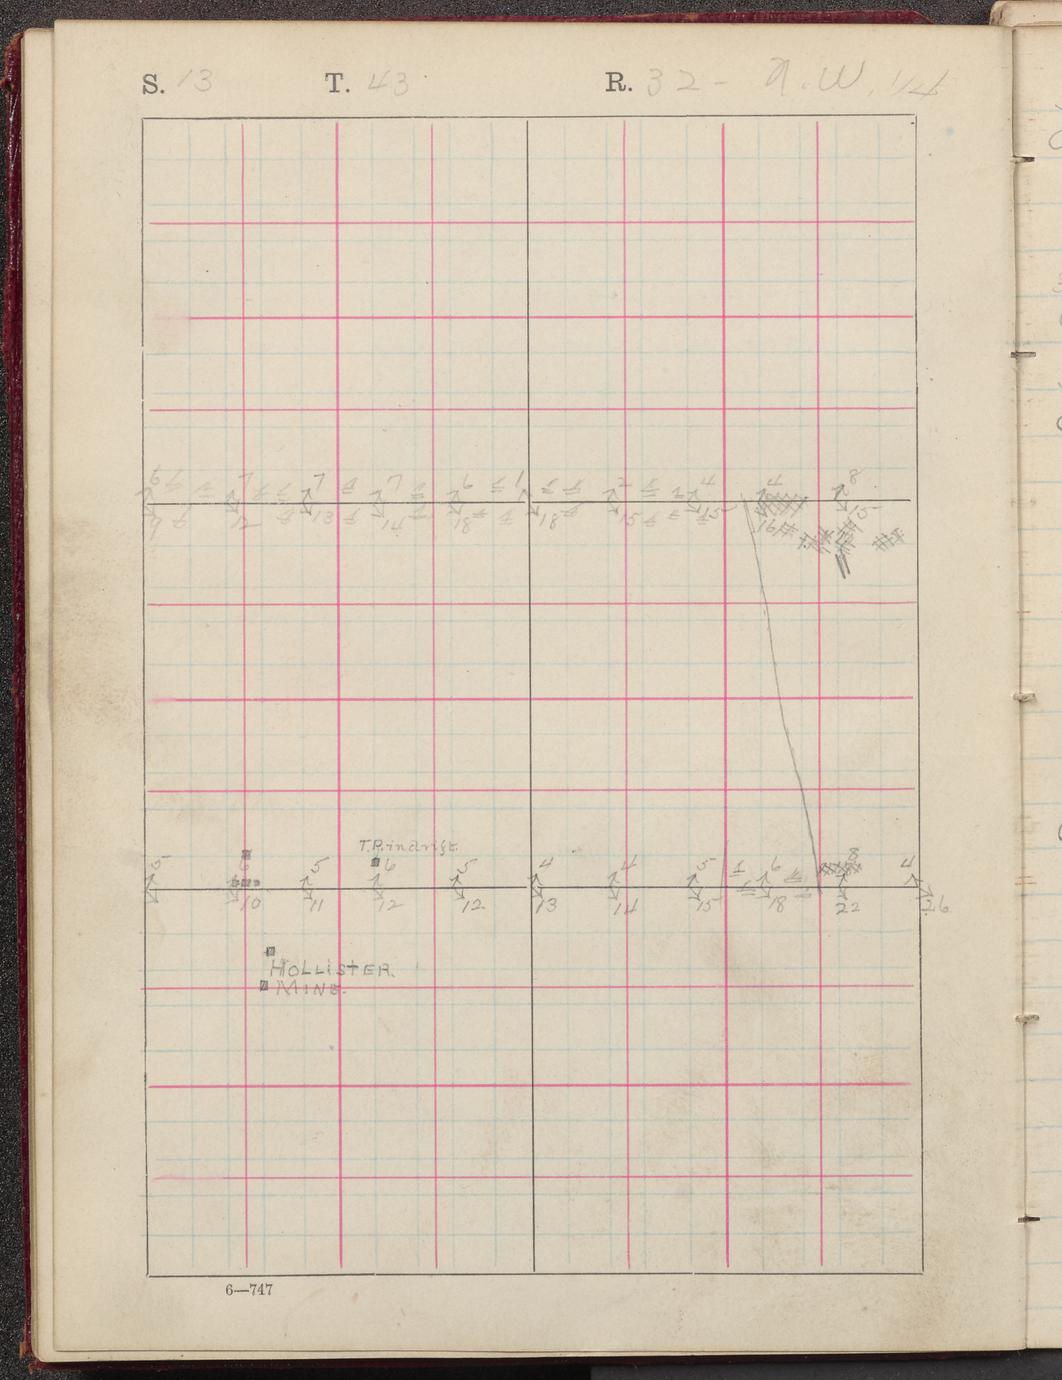 S. 13 T. 43 R. 32 - N.W. 1/4
6 7 7 7 6 1 2 4 4 8
12 13 14 18 18 15 15 16 15
T.P. in drift
5 6 5 6 5 4 4 5 6 8 4
10 11 12 12 13 14 15 18 22 26
HOLLISTER
MINE.
6—747